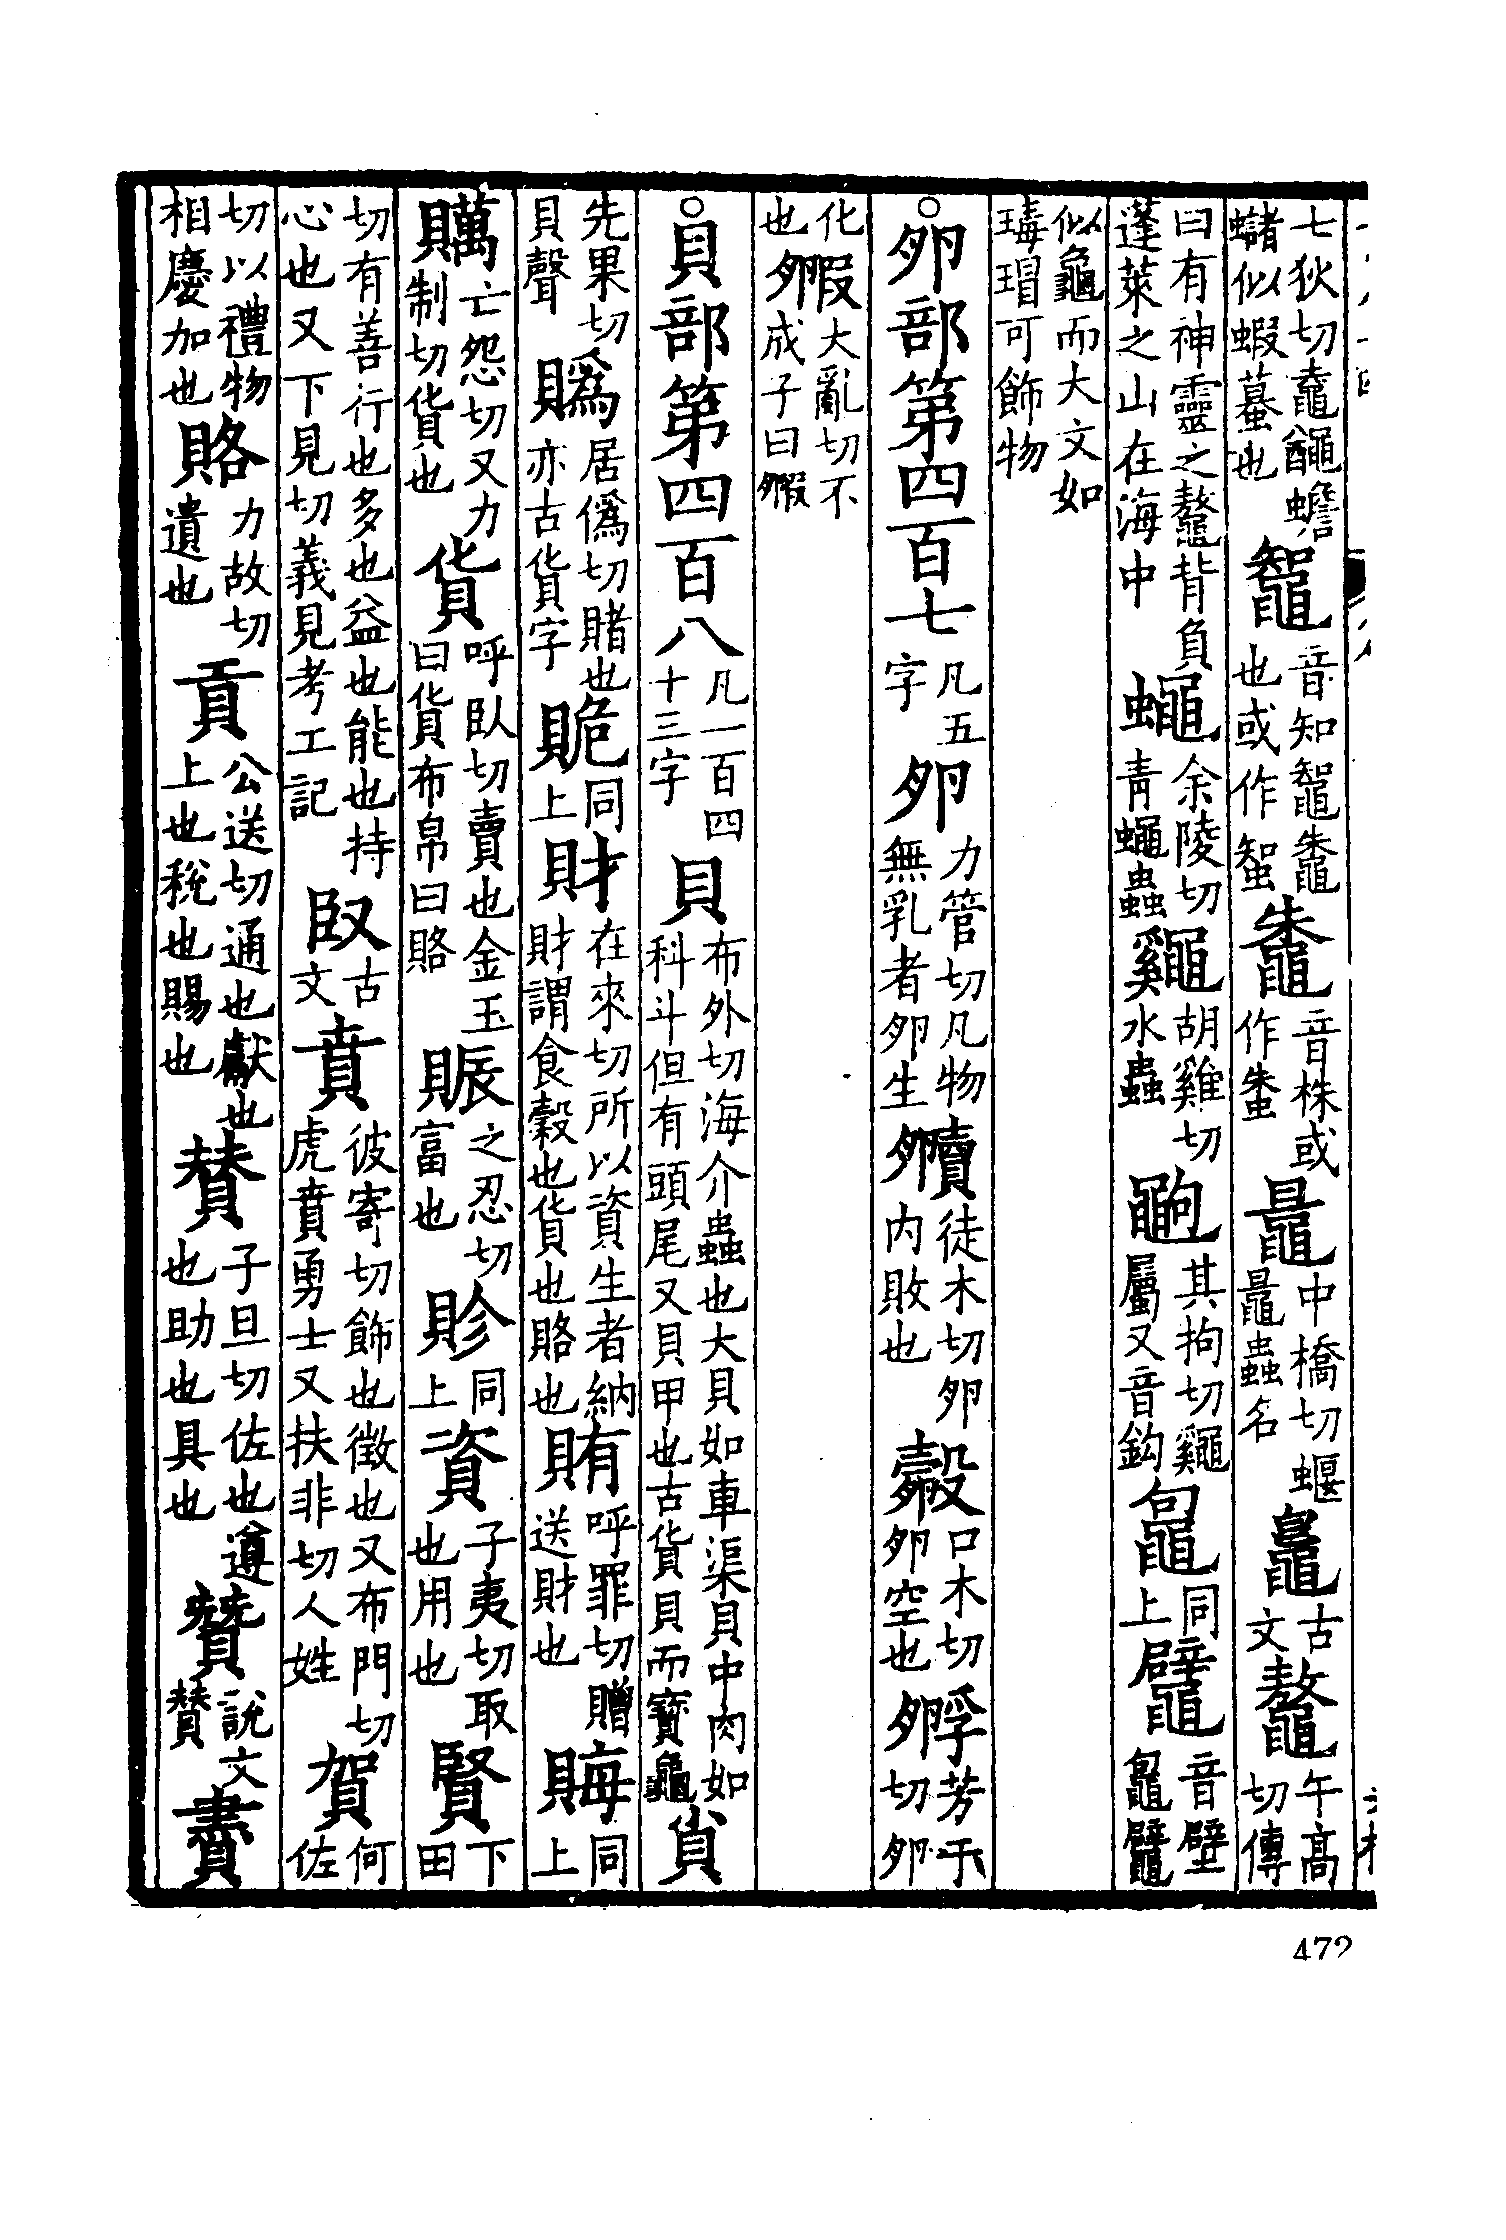 七狄切鼀䵶蟾蠩似蝦蟇也鼅音知鼅鼄也或作蜘鼄音株或作蛛鼂中橋切蝘鼂蟲名鼌古文鼇午高切傳
曰有神靈之鼇背負蓬萊之山在海中蠅余陵切青蠅蟲䵶胡雞切水蟲䵹其拘切䵶屬又音鈎䵹同上鼊音壁鼅鼊
似龜而大文如瑇瑁可飾物
○卵部第四百七凡五字卵力管切凡物無乳者卵生㱩徒木切卵内敗也㱿口木切卵空也孵芳于切卵
化也㲉大亂切不成子曰㲉
○貝部第四百八凡一百四十三字貝布外切海介蟲也大貝如車渠貝中肉如科斗但有頭尾又貝甲也古貨貝而寶龜𧴪
先果切貝聲賵居僞切賭也亦古貨字貤同上財在來切所以資生者納財謂食穀也貨也賂也賄呼罪切贈送財也䀲同上
贎亡怨切又力制切貨也貨呼臥切賣也金玉曰貨布帛曰賂賑之忍切富也䝩同上資子夷切取也用也賢下田
切有善行也多也益也能也持心也又下見切義見考工記臤古文賁彼寄切飾也徵也又布門切虎賁勇士又扶非切人姓賀何佐
切以禮物相慶加也賂力故切遺也貢公送切通也獻也上也稅也賜也賛子旦切佐也遵也助也具也贊說文賛賮
472